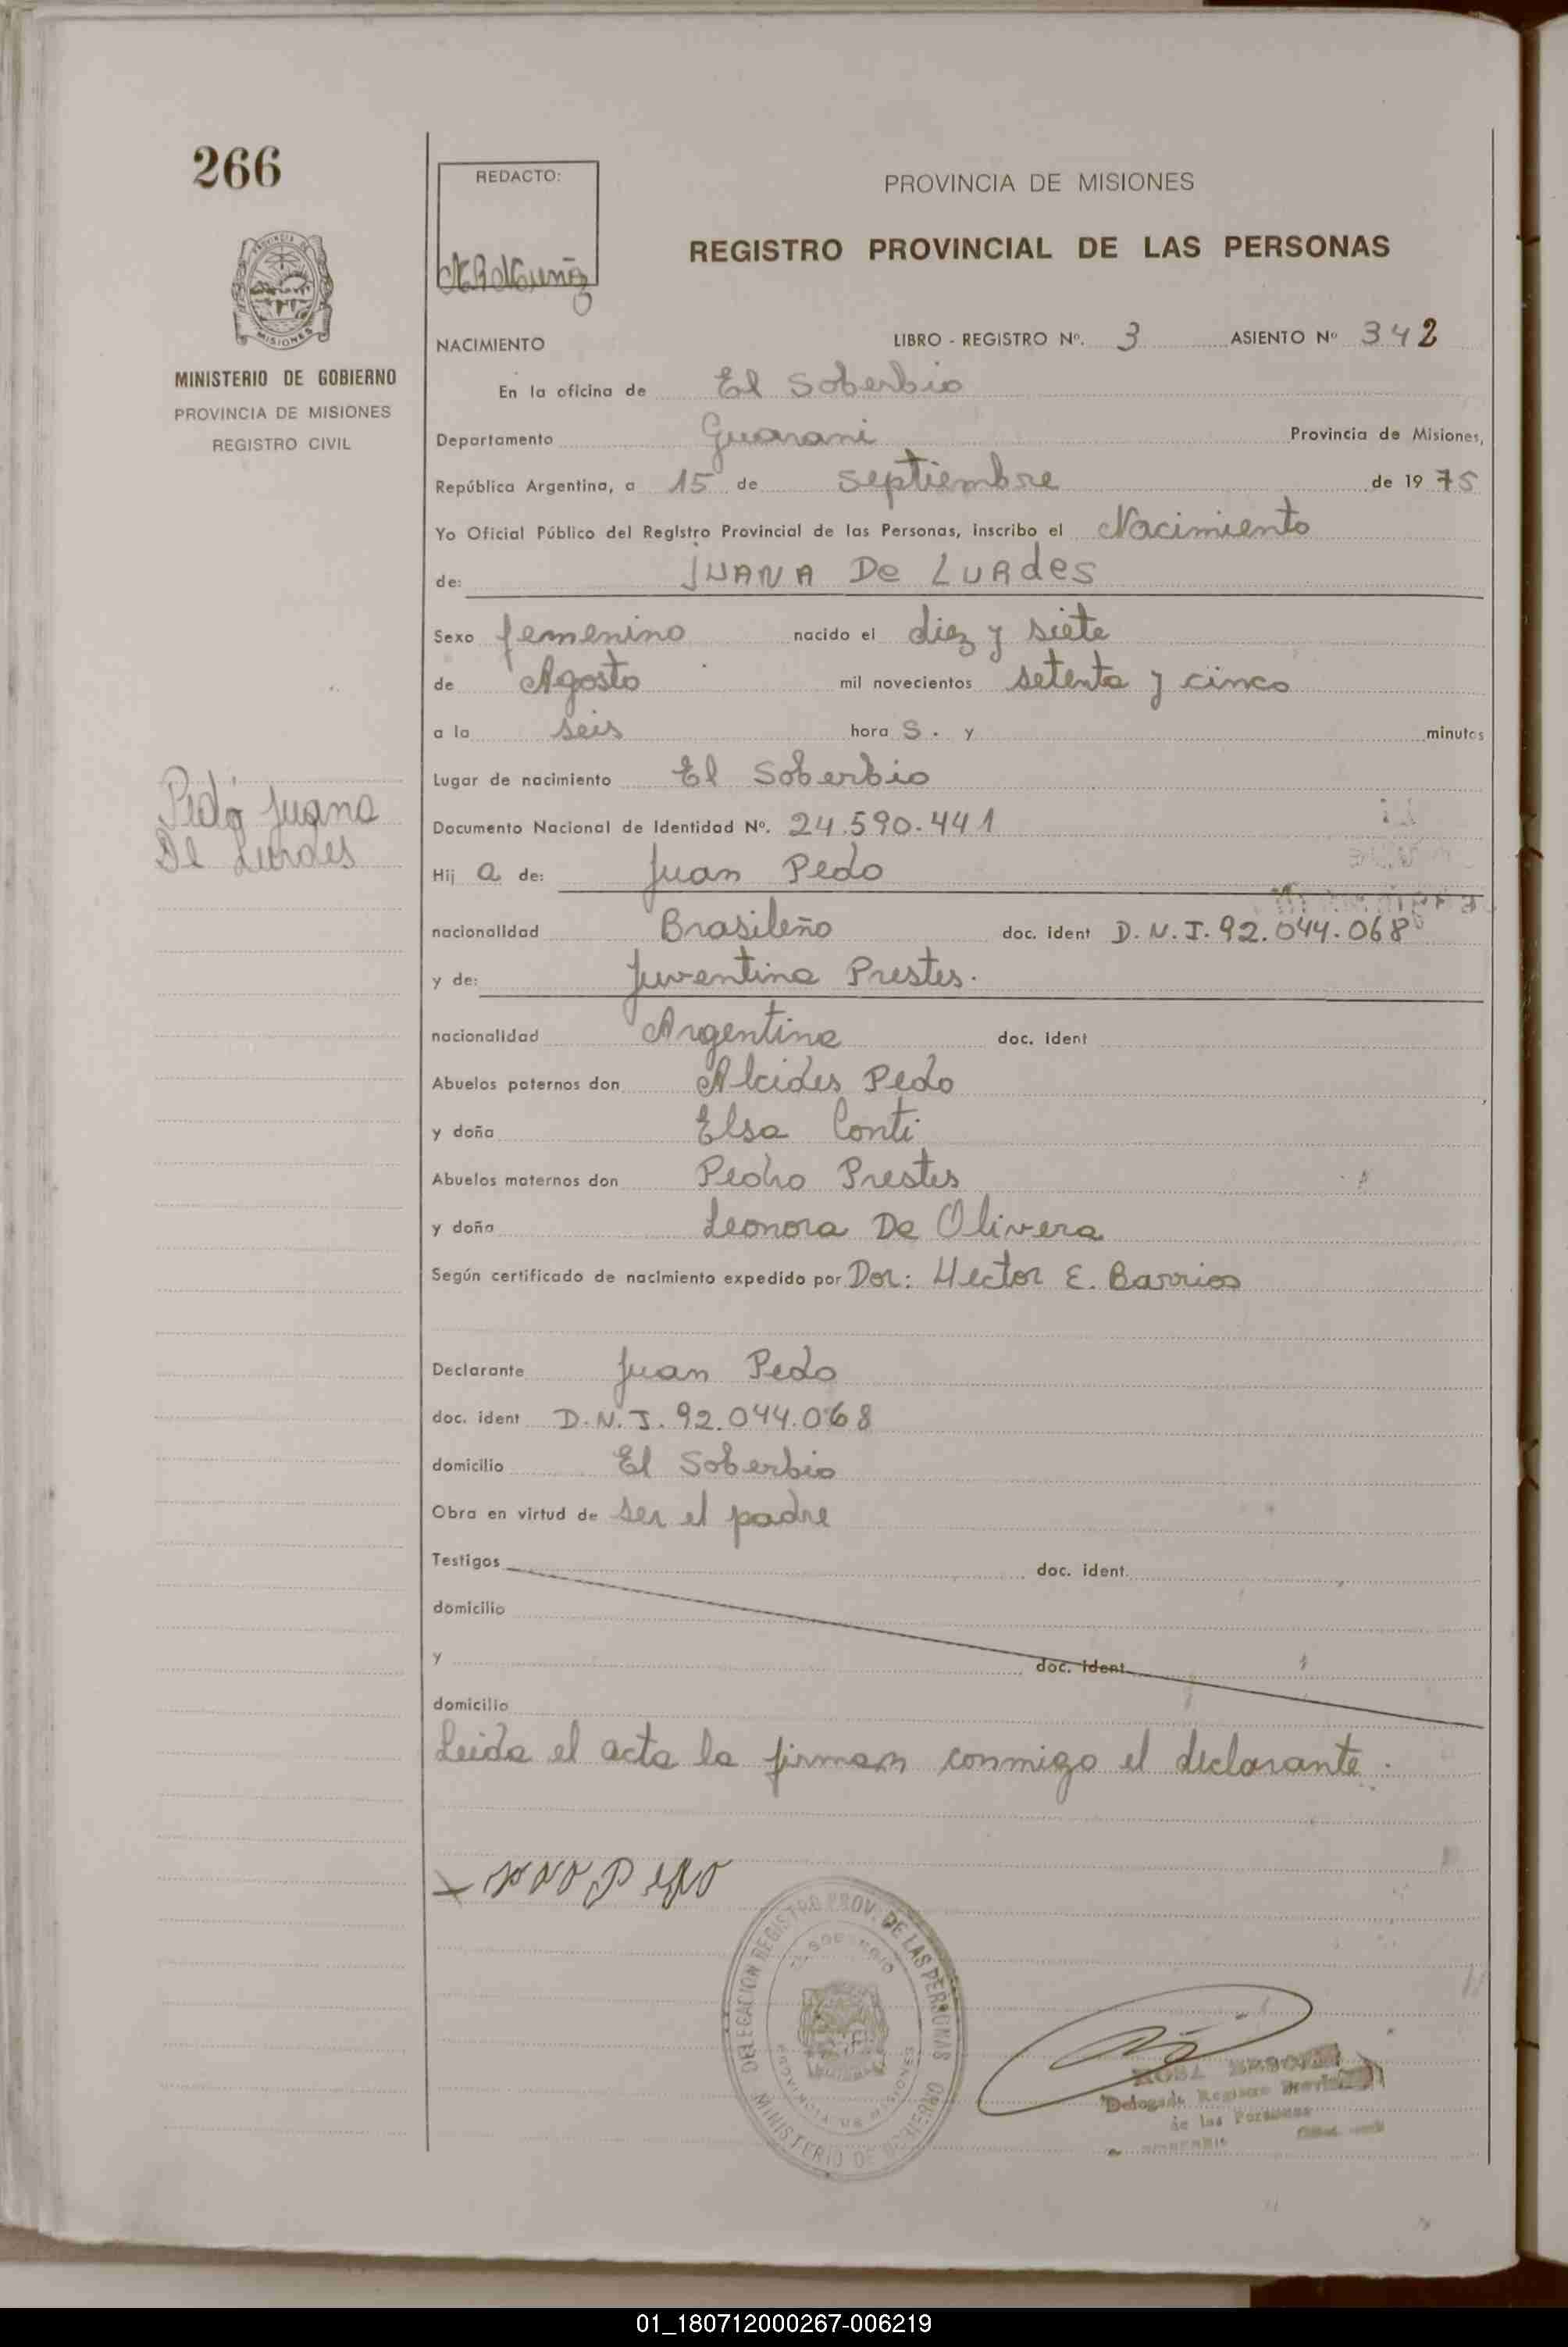 266
REDACTO:
PROVINCIA DE MISIONES
REGISTRO PROVINCIAL DE LAS PERSONAS
MINISTERIO DE GOBIERNO
PROVINCIA DE MISIONES
REGISTRO CIVIL
NACIMIENTO LIBRO - REGISTRO Nº. 3 ASIENTO Nº 342
En la oficina de El Soberbio
Departamento Guarani Provincia de Misiones,
República Argentina, a 15 de septiembre de 1975
Yo Oficial Público del Registro Provincial de las Personas, inscribo el Nacimiento
de: JUANA De LURdes
Sexo femenino nacido el diez y siete
de Agosto mil novecientos setenta y cinco
a la seis hora s. y minutos
Lugar de nacimiento El Soberbio
Pedo Juana
De Lurdes
Documento Nacional de Identidad Nº. 24.590.441
Hij a de: Juan Pedo
nacionalidad Brasileño doc. ident D.N.I. 92.044.068
y de: Juventina Prestes.
nacionalidad Argentina doc. ident
Abuelos paternos don Alcides Pedo
y doña Elsa Conti
Abuelos maternos don Pedro Prestes
y doña Leonora De Olivera
Según certificado de nacimiento expedido por Dor: Hector E. Barrios
Declarante Juan Pedo
doc. ident D.N.I. 92.044.068
domicilio El Soberbio
Obra en virtud de ser el padre
Testigos doc. ident.
domicilio
y doc. ident
domicilio
Leida el acta la firman conmigo el declarante.
DELEGACION REGISTRO PROV. DE LAS PERSONAS
EL SOBERBIO
PROVINCIA DE MISIONES
MINISTERIO DE GOBIERNO
Delegada Registro
de las Personas
01_180712000267-006219